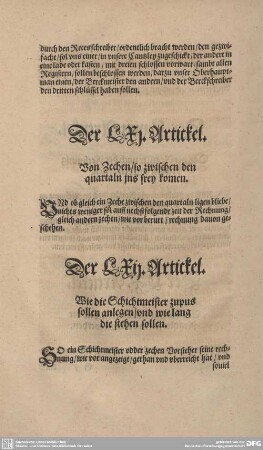 durch den Receßschreiber/ordenelich bracht werden/den gezwi-
facht/sol vns einer/in vnsere Cantzley zugeschickt/der ander in
eine lade oder kasten/mit dreien schlossen vorwart/sambt allen
Registern/sollen beschlossen werden/darzu vnser Oberhaupt-
man einen/der Berckmeister den andern/vnd der Berckschreiber
den dritten schlüssel haben sollen.
Der LXj. Artickel.
Von Zechen/so zwischen den
quartaln jns frey komen.
VNd ob gleich ein Zeche zwischen den quartaln ligen bliebe/
nicht weniger sol auff nechstfolgende zeit der Rechnung/
gleich andern zechen/wie vor berurt/rechnung dauon ge-
schehen.
Der LXij. Artickel.
Wie die Schichtmeister zupus
sollen anlegen/vnd wie lang
die stehen sollen.
SO ein Schichtmeister odder zechen Vorsteher seine rech-
nung/wie vor angezeigt/gethan vnd vberreicht hat/vnd
souiel